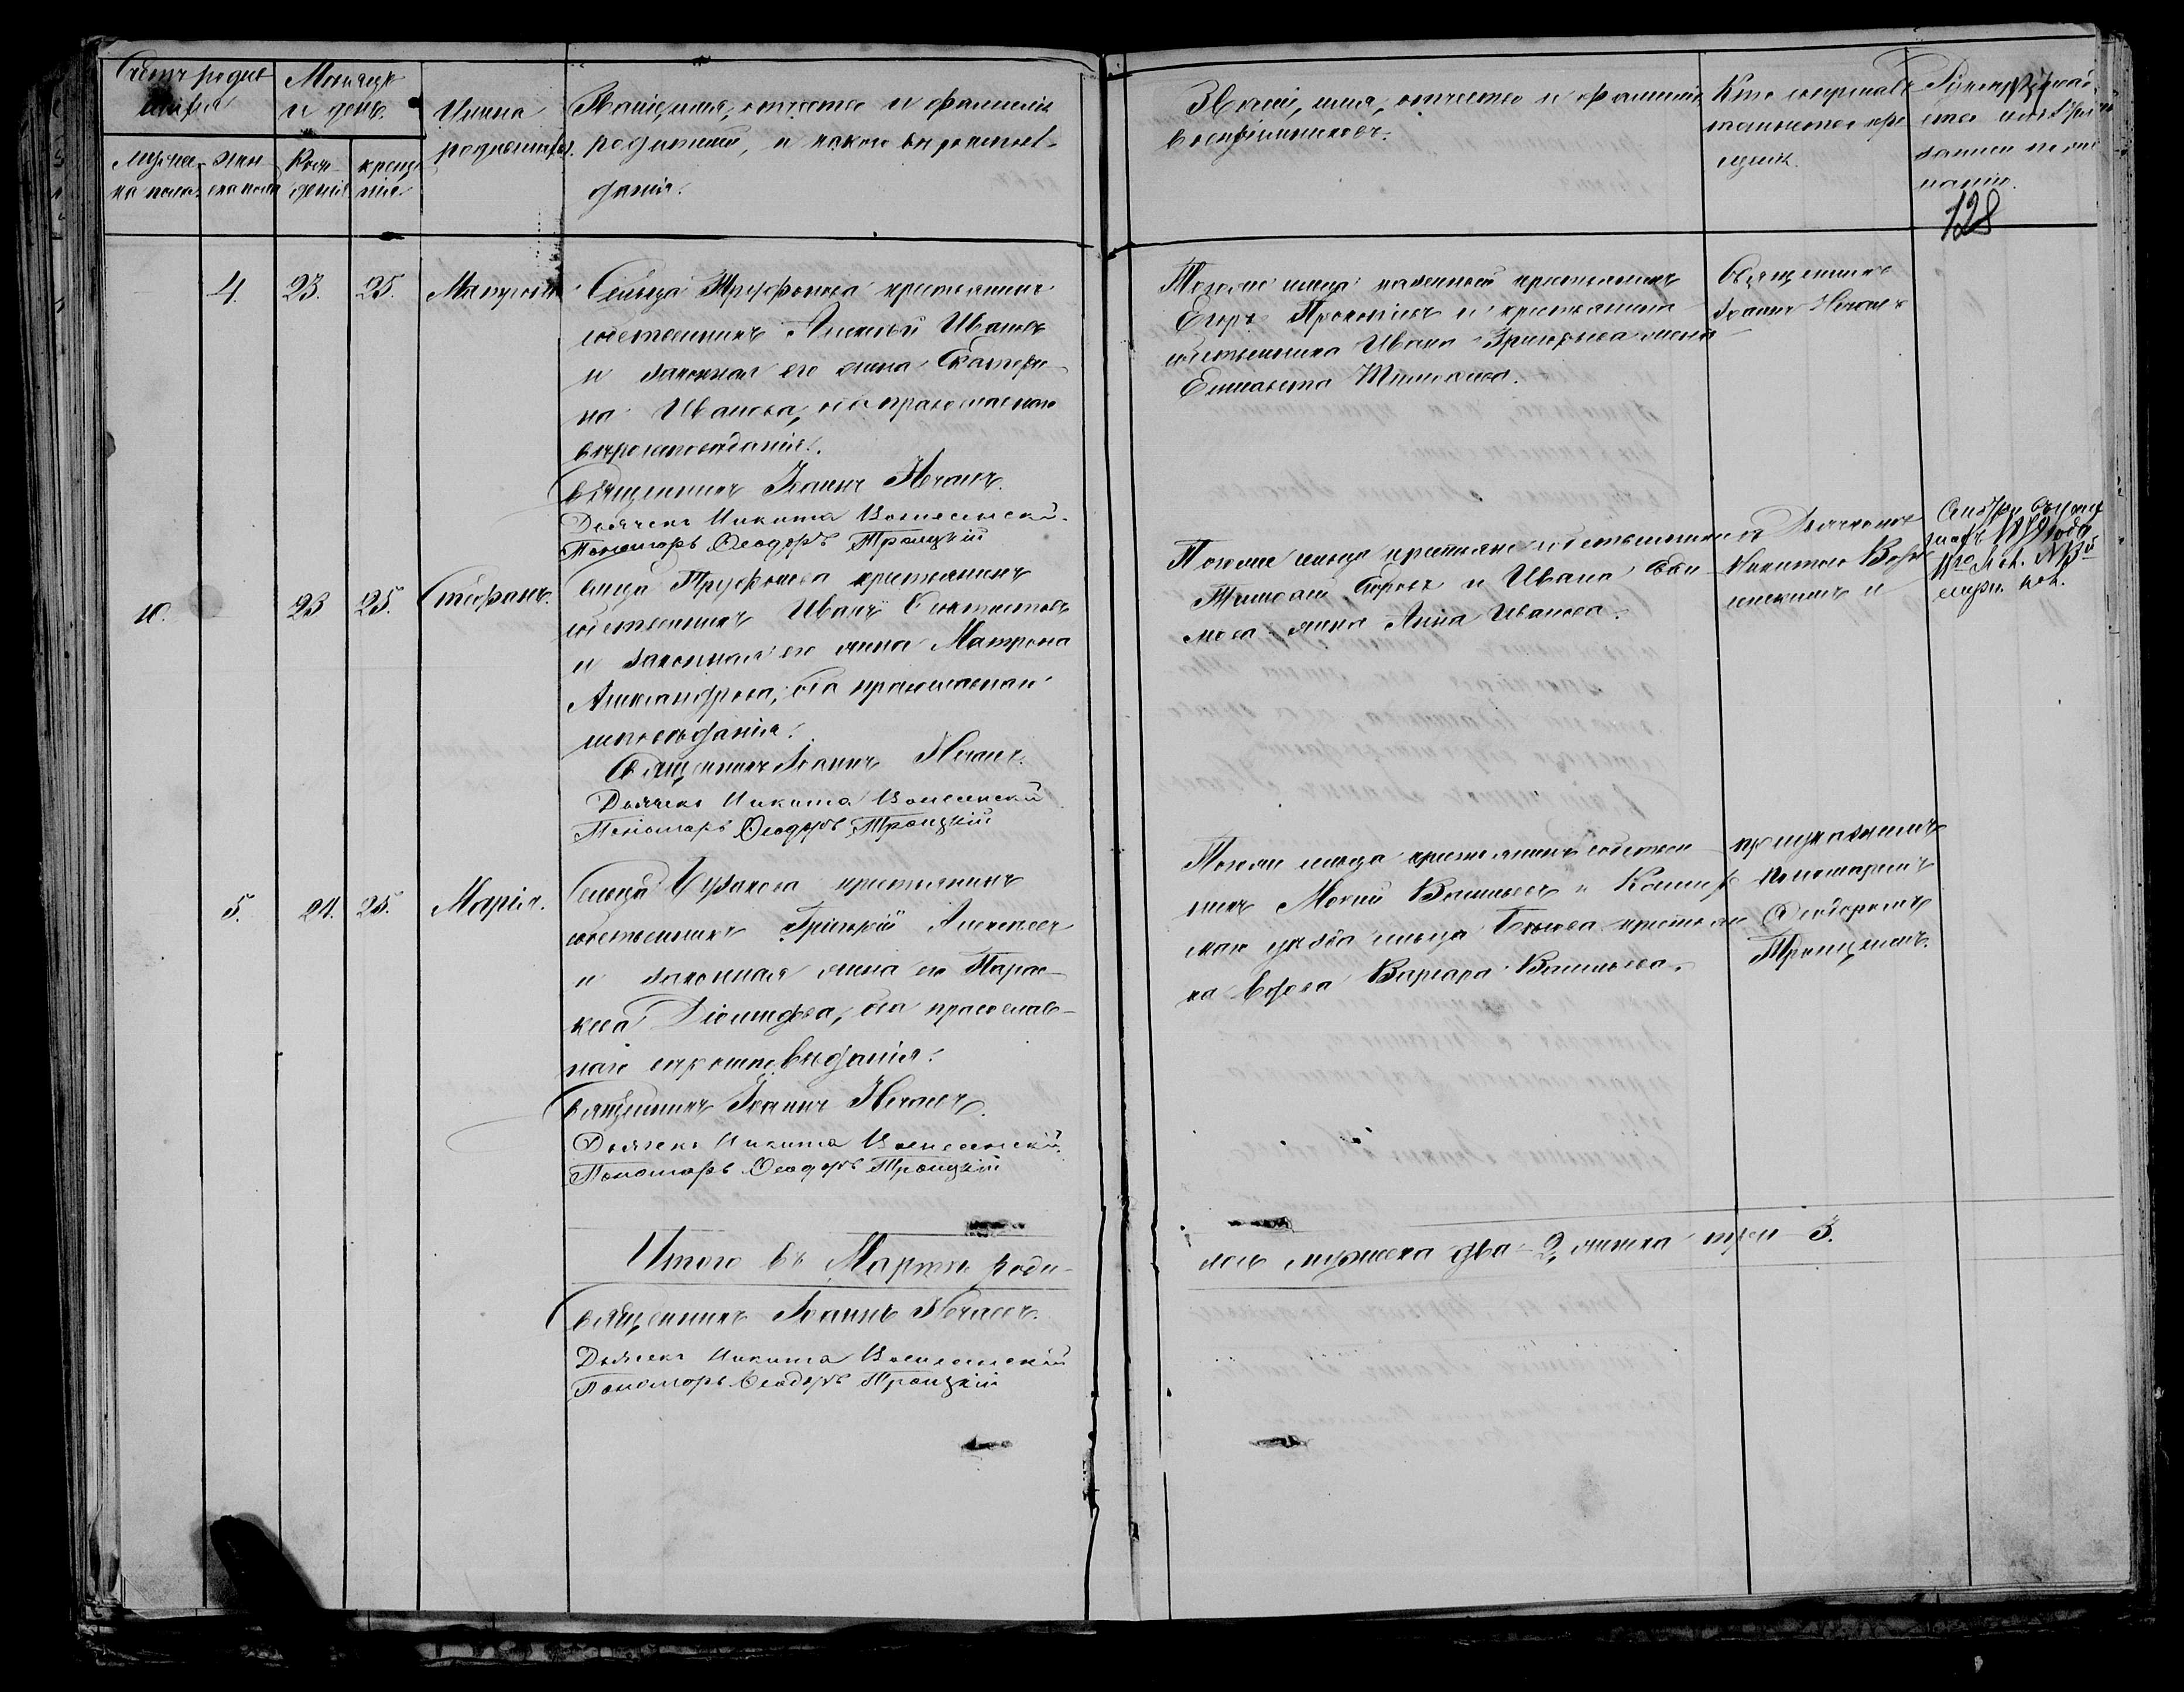 Счетъ родив
шихся
Мѣсяцъ
и день.
Имена
родившихся.
Званіе, имя, отчество и фамилія
родителей, и какого вѣроисповѣ-
данія.
Званіе, имя, отчество и фамилія
воспріемниковъ.
Кто совершалъ
таинство кре
щенія.
муже- жен-
ска пола. ска пола
рож-
денія
креще
нія.
128
4. 23. 25.
Сельца Труфонова крестьянинъ
собственникъ Алексѣй Ивановъ
и законная его жена Екатери-
на Иванова, оба православнаго
вѣроисповѣданія.
Священникъ Іоаннъ Нечаевъ.
Дьячекъ Никита Вознесенскій.
Пономарь Ѳеодоръ Троицкій
Тогоже сельца крестьянинъ
Егоръ Прокопіевъ и крестьянина
собственника Ивана Григорьева жена
Елисавета
Священникъ
Іоаннъ Нечаевъ
10. 23 25. Стефанъ.
сельца Труфонова крестьянинъ
собственникъ Иванъ
и законная его жена Матрона
Александрова, оба православнаго
исповѣданія.
Священникъ Іоаннъ Нечаевъ.
Дьячекъ Никита Вознесенскій
Пономарь Ѳеодоръ Троицкій
Тогоже сельца крестьяне собственники
и Ивана
жена Анна Иванова.
съ Дьячкомъ
Никитою Возне
сенскимъ и
5. 24. 25. Марія.
Сельца крестьянинъ
собственникъ Григорій Алексѣевъ
и законная жена его Парас-
кева оба православ-
наго вѣроисповѣданія.
Священникъ Іоаннъ Нечаевъ.
Дьячекъ Никита Вознесенскій.
Пономарь Ѳеодоръ Троицкій
Тогоже сельца крестьянинъ собствен
никъ Васильевъ и
уѣзда сельца крестьян
ка вдова Варвара Васильева.
Пономаремъ
Ѳеодоромъ
Троицкимъ.
Итого въ Мартѣ роди-
лось мужеска два - 2, женска три 3.
Священникъ Іоаннъ Нечаевъ.
Дьячекъ Никита Вознесенскій
Пономарь Ѳеодоръ Троицкій